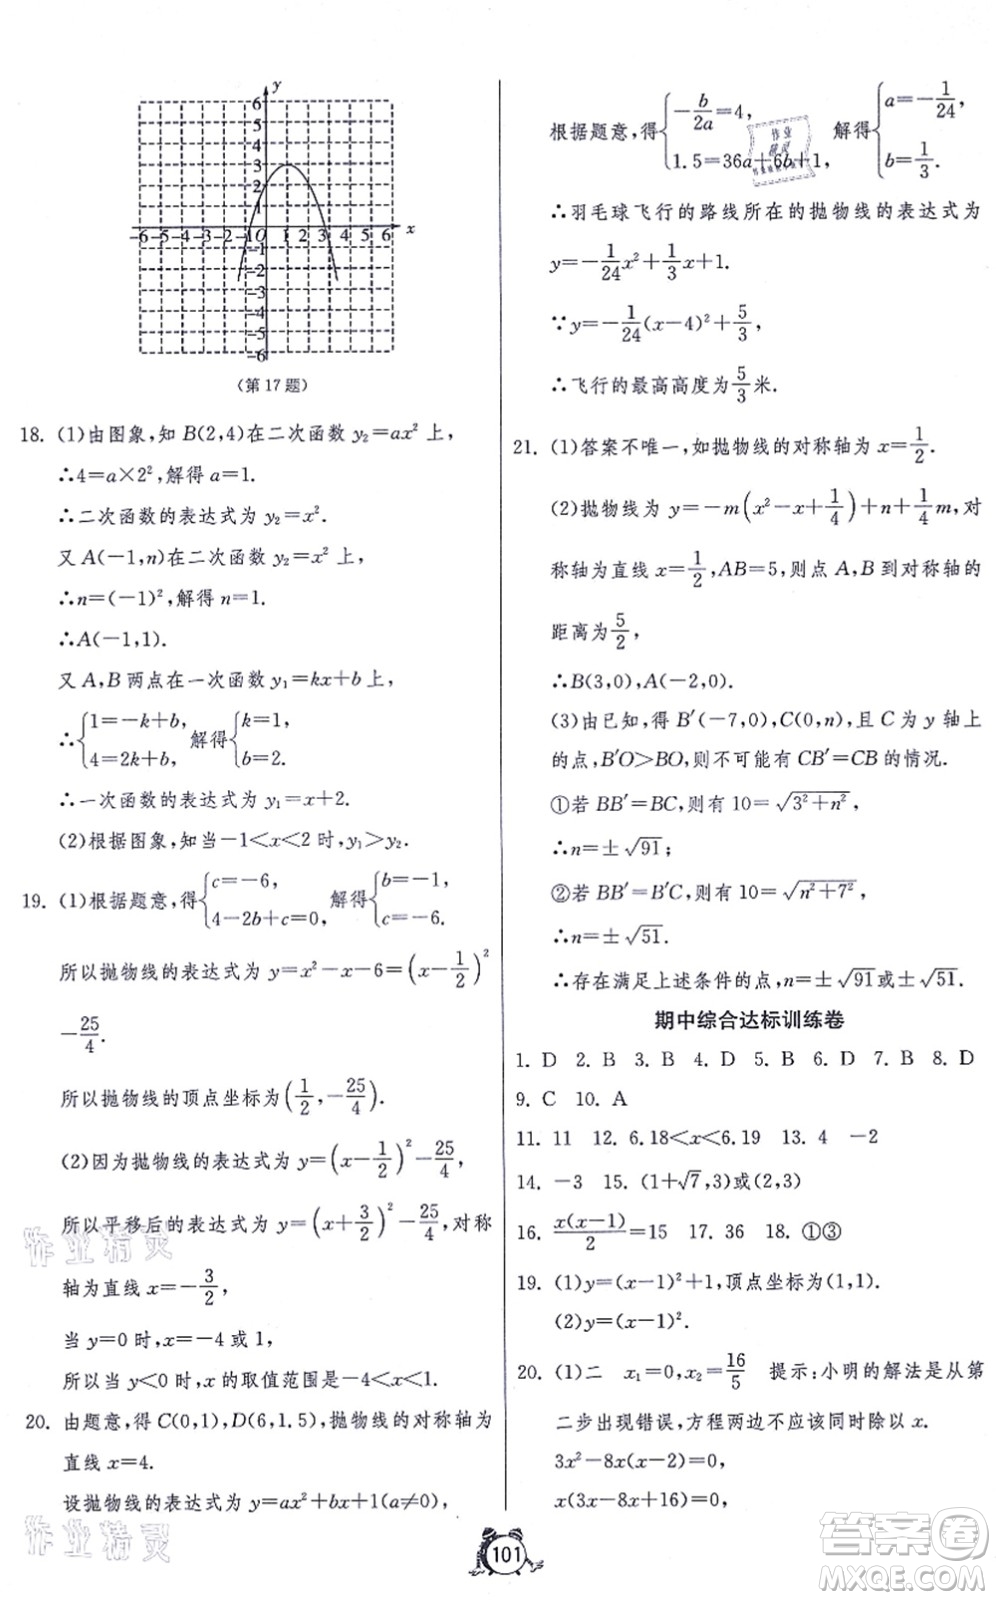 y
6
5
4
3
2
1
-6-5-4-3-2-1O 1 2 3 4 5 6 x
-1
-2
-3
-4
-5
-6
(第17题)
18. (1)由图象,知 B(2,4)在二次函数 y₂=ax² 上,
∴4=a×2²,解得 a=1.
∴二次函数的表达式为 y₂=x².
又 A(-1,n)在二次函数 y₂=x² 上,
∴n=(-1)²,解得 n=1.
∴A(-1,1).
又 A,B 两点在一次函数 y₁=kx+b 上,
∴{1=-k+b, 4=2k+b, 解得{k=1, b=2.
∴一次函数的表达式为 y₁=x+2.
(2)根据图象,知当-1<x<2 时,y₁>y₂.
19. (1)根据题意,得{c=-6, 4-2b+c=0, 解得{b=-1, c=-6.
所以抛物线的表达式为 y=x²-x-6=(x-1/2)²
-25/4.
所以抛物线的顶点坐标为(1/2,-25/4).
(2)因为抛物线的表达式为 y=(x-1/2)²-25/4,
所以平移后的表达式为 y=(x+3/2)²-25/4,对称
轴为直线 x=-3/2,
当 y=0 时,x=-4 或 1,
所以当 y<0 时,x 的取值范围是-4<x<1.
20. 由题意,得 C(0,1),D(6,1.5),抛物线的对称轴为
直线 x=4.
设抛物线的表达式为 y=ax²+bx+1(a≠0),
根据题意,得{-b/2a=4, 1.5=36a+6b+1, 解得{a=-1/24, b=1/3.
∴羽毛球飞行的路线所在的抛物线的表达式为
y=-1/24x²+1/3x+1.
∵y=-1/24(x-4)²+5/3,
∴飞行的最高高度为5/3米.
21. (1)答案不唯一,如抛物线的对称轴为 x=1/2.
(2)抛物线为 y=-m(x²-x+1/4)+n+1/4m,对
称轴为直线 x=1/2,AB=5,则点 A,B 到对称轴的
距离为5/2,
∴B(3,0),A(-2,0).
(3)由已知,得 B′(-7,0),C(0,n),且 C 为 y 轴上
的点,B′O>BO,则不可能存在 CB′=CB 的情况.
①若 BB′=BC,则有 10=√(3²+n²),
∴n=±√91;
②若 BB′=B′C,则有 10=√(n²+7²),
∴n=±√51.
∴存在满足上述条件的点,n=±√91或±√51.
期中综合达标训练卷
1. D 2. B 3. B 4. D 5. B 6. D 7. B 8. D
9. C 10. A
11. 11 12. 6.18<x<6.19 13. 4 -2
14. -3 15. (1+√7,3)或(2,3)
16. x(x-1)/2=15 17. 36 18. ①③
19. (1)y=(x-1)²+1,顶点坐标为(1,1).
(2)y=(x-1)².
20. (1)二 x₁=0,x₂=16/5 提示:小明的解法是从第
二步出现错误,方程两边不应该同时除以 x.
3x²-8x(x-2)=0,
x(3x-8x+16)=0,
101
作业精灵
作业精灵
答案卷
MXQE.COM